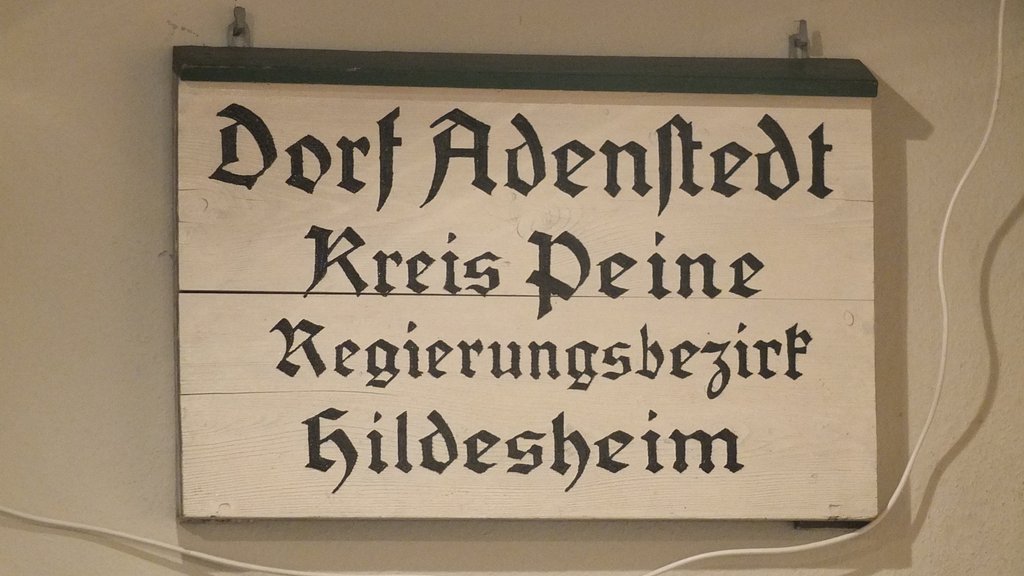 Dorf Adenſtedt
Kreis Peine
Regierungsbezirk
Hildesheim